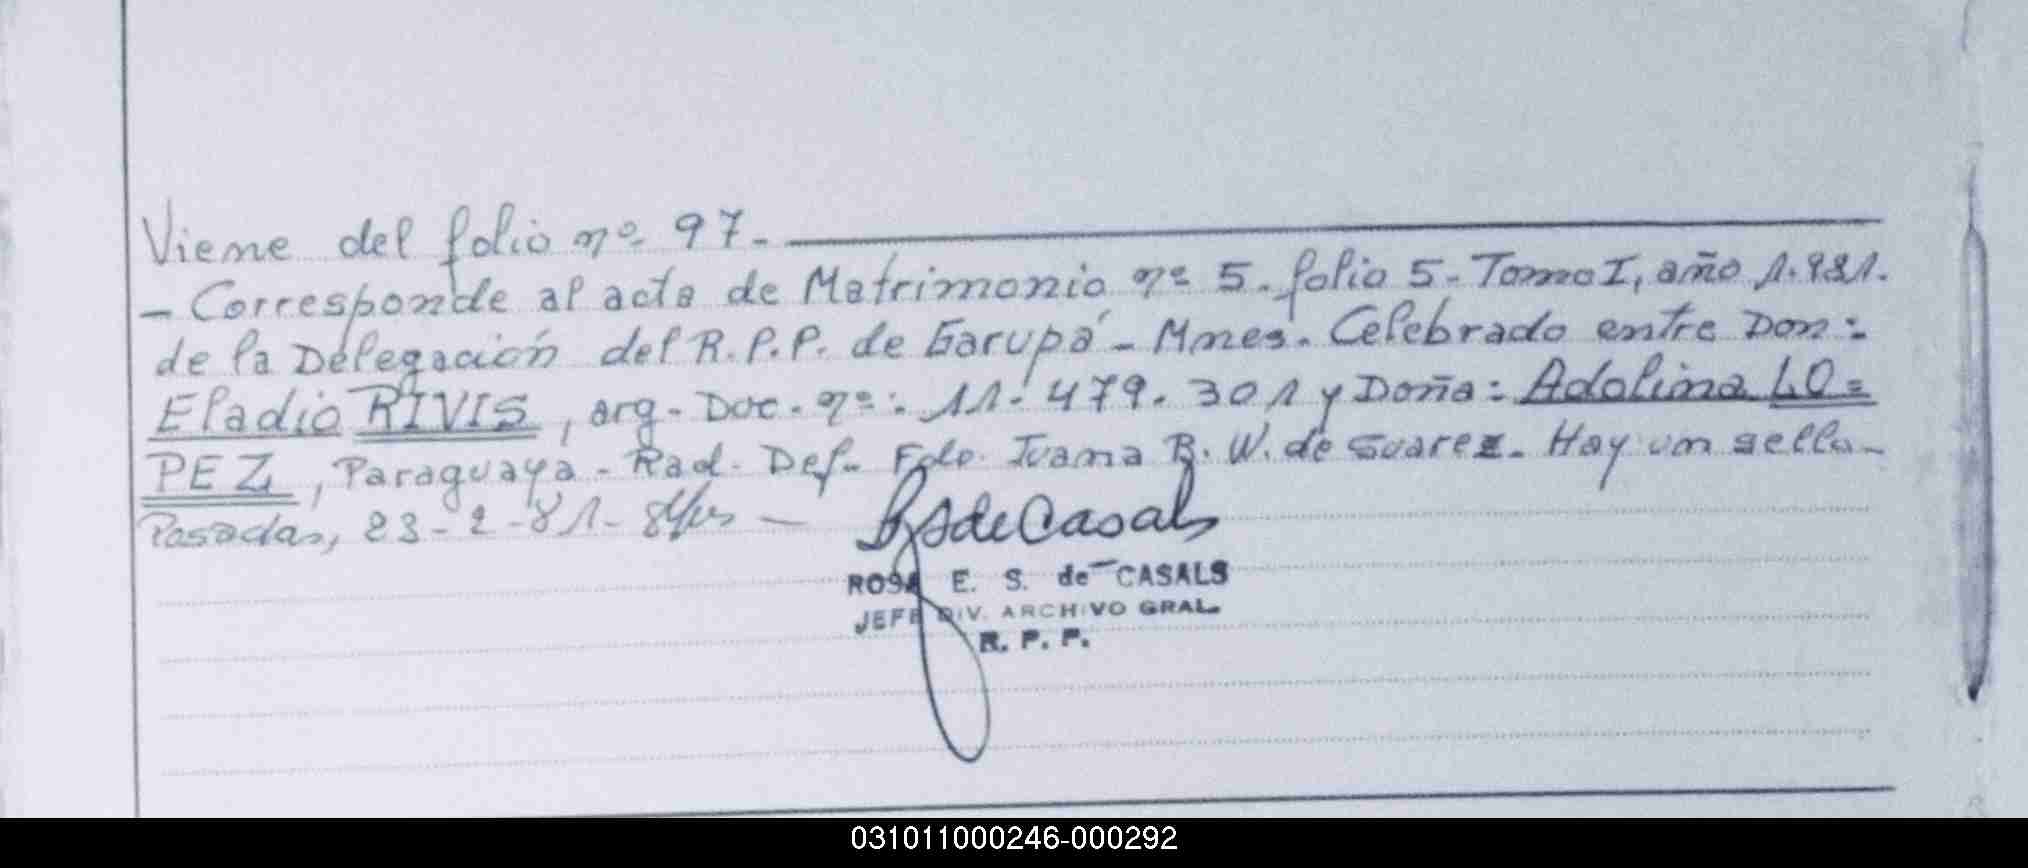 Viene del folio nº 97.-
- Corresponde al acta de Matrimonio nº 5- folio 5- Tomo I, año 1.981.
de la Delegación del R.P.P. de Garupá - Mnes. Celebrado entre Don:
Eladio RIVIS, arg- Doc. nº: 11.479.301 y Doña: Adolina LO=
PEZ, Paraguaya - Rad. Def- Fdo. Juana B. W. de Suarez. Hay un sello-
Posadas, 23-2-81-
RSdeCasals
ROSA E. S. de CASALS
JEFE DIV. ARCHIVO GRAL.
R. P. P.
031011000246-000292